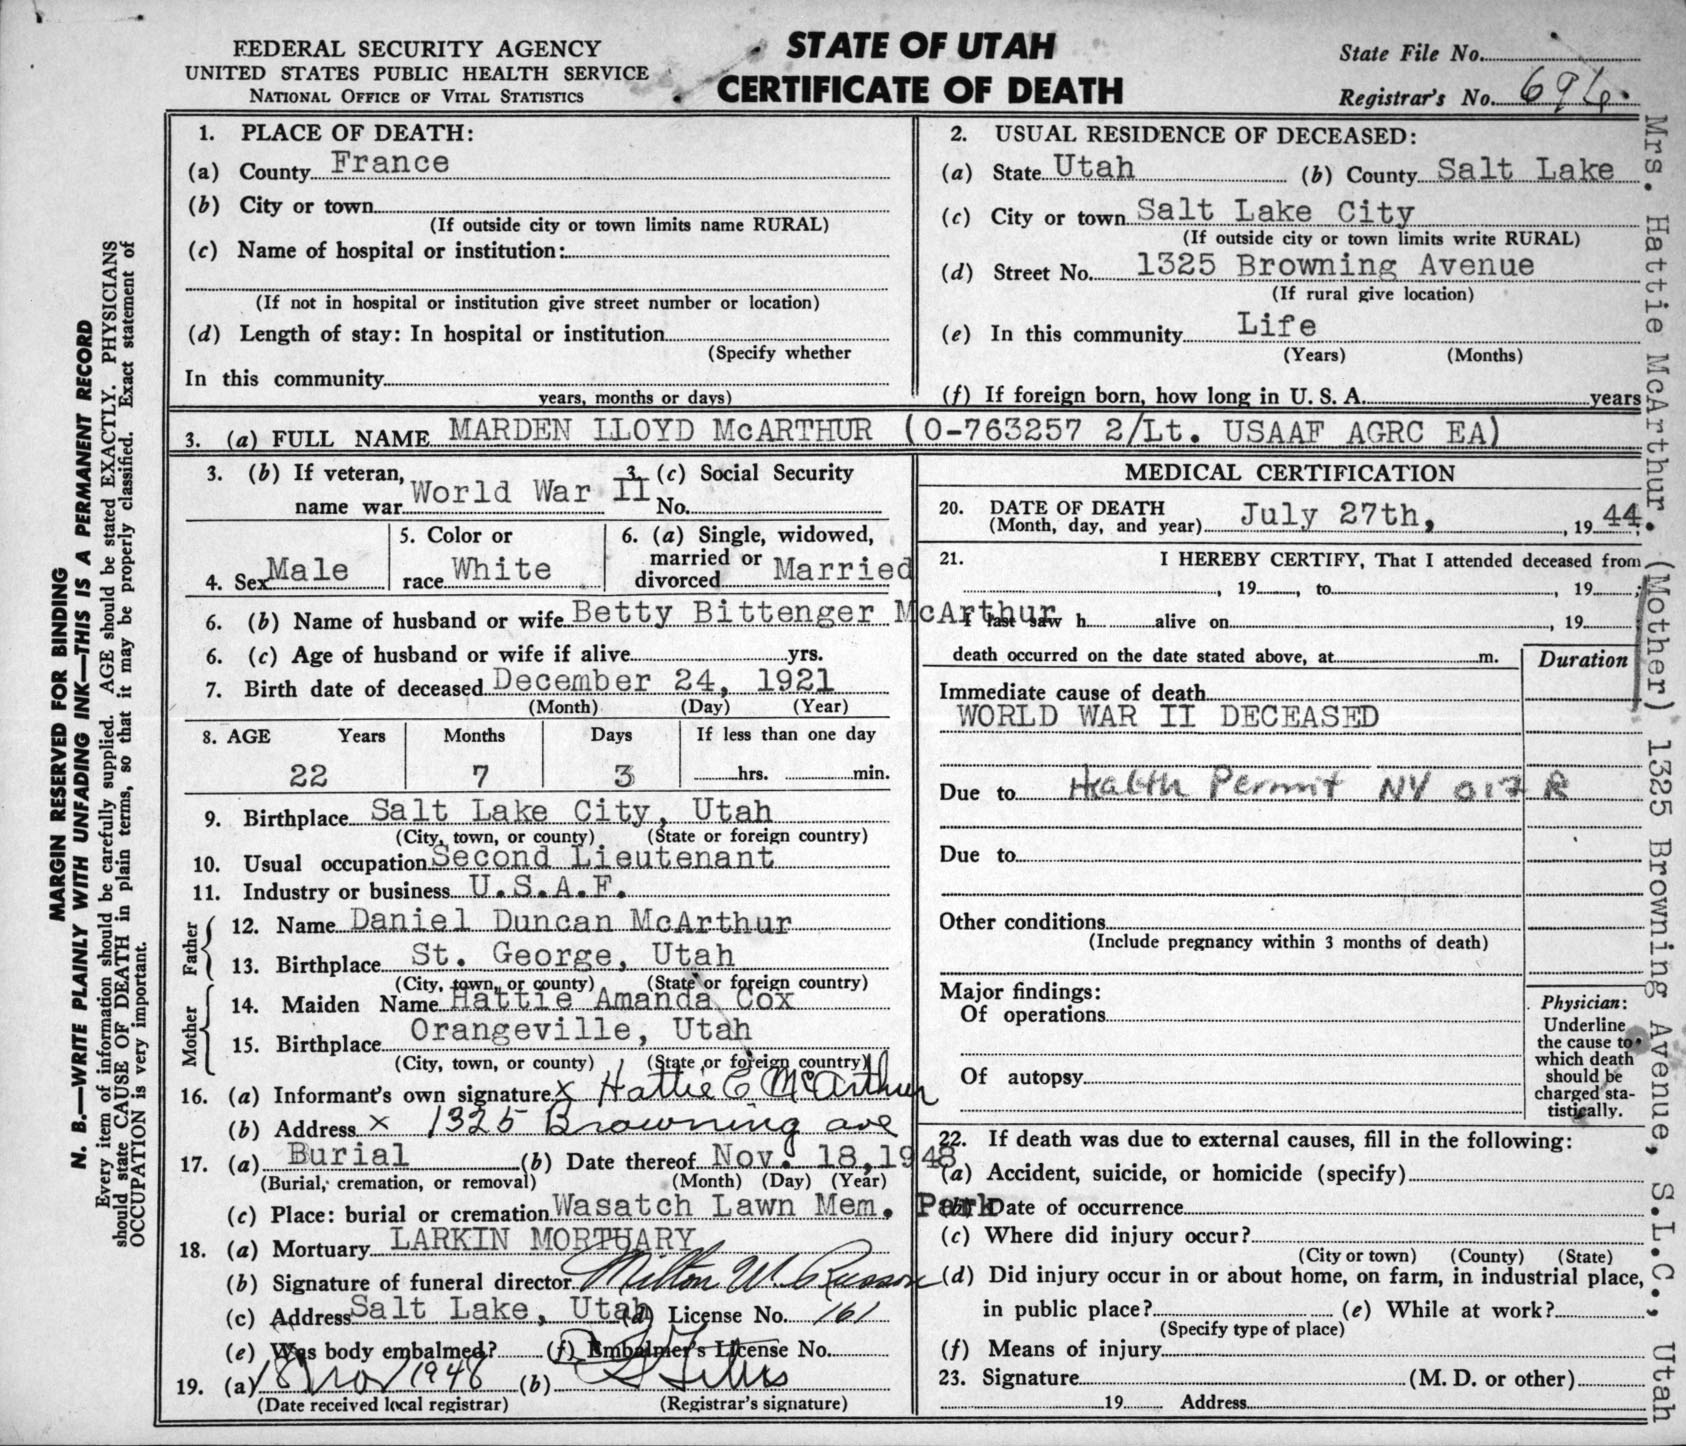 FEDERAL SECURITY AGENCY
UNITED STATES PUBLIC HEALTH SERVICE
NATIONAL OFFICE OF VITAL STATISTICS
STATE OF UTAH
CERTIFICATE OF DEATH
State File No.
Registrar's No.
1. PLACE OF DEATH:
(a) County France
(b) City or town
(If outside city or town limits name RURAL)
(c) Name of hospital or institution:
(If not in hospital or institution give street number or location)
(d) Length of stay: In hospital or institution
(Specify whether
In this community
years, months or days)
2. USUAL RESIDENCE OF DECEASED:
(a) State Utah (b) County Salt Lake
(c) City or town Salt Lake City
(If outside city or town limits write RURAL)
(d) Street No. 1325 Browning Avenue
(If rural give location)
(e) In this community Life
(Years) (Months)
(f) If foreign born, how long in U. S. A. years
3. (a) FULL NAME MARDEN LLOYD McARTHUR (O-763257 2/Lt. USAAF AGRC EA)
3. (b) If veteran,
name war World War II
3. (c) Social Security
No.
4. Sex Male
5. Color or
race White
6. (a) Single, widowed,
married or
divorced Married
6. (b) Name of husband or wife Betty Bittenger McArthur
6. (c) Age of husband or wife if alive yrs.
7. Birth date of deceased December 24, 1921
(Month) (Day) (Year)
8. AGE Years Months Days If less than one day
22 7 3 hrs. min.
9. Birthplace Salt Lake City, Utah
(City, town, or county) (State or foreign country)
10. Usual occupation Second Lieutenant
11. Industry or business U.S.A.F.
Father
12. Name Daniel Duncan McArthur
13. Birthplace St. George, Utah
(City, town, or county) (State or foreign country)
Mother
14. Maiden Name Hattie Amanda Cox
15. Birthplace Orangeville, Utah
(City, town, or county) (State or foreign country)
16. (a) Informant's own signature x Hattie C McArthur
(b) Address x 1325 Browning ave
17. (a) Burial (b) Date thereof Nov. 18, 1948
(Burial, cremation, or removal) (Month) (Day) (Year)
(c) Place: burial or cremation Wasatch Lawn Mem. Park
18. (a) Mortuary LARKIN MORTUARY
(b) Signature of funeral director Milton W. Russon
(c) Address Salt Lake, Utah (d) License No. 161
(e) Was body embalmed? (f) Embalmer's License No.
19. (a) 18 Nov 1948 (b)
(Date received local registrar) (Registrar's signature)
MEDICAL CERTIFICATION
20. DATE OF DEATH
(Month, day, and year) July 27th, , 19 44.
21. I HEREBY CERTIFY, That I attended deceased from
, 19 , to , 19 ;
I last saw h alive on , 19
death occurred on the date stated above, at m.
Duration
Immediate cause of death
WORLD WAR II DECEASED
Due to Health Permit NY 017 R
Due to
Other conditions
(Include pregnancy within 3 months of death)
Major findings:
Of operations
Of autopsy
Physician:
Underline
the cause to
which death
should be
charged sta-
tistically.
22. If death was due to external causes, fill in the following:
(a) Accident, suicide, or homicide (specify)
(b) Date of occurrence
(c) Where did injury occur?
(City or town) (County) (State)
(d) Did injury occur in or about home, on farm, in industrial place,
in public place? (e) While at work?
(Specify type of place)
(f) Means of injury
23. Signature (M. D. or other)
19 Address
MARGIN RESERVED FOR BINDING
N. B.—WRITE PLAINLY WITH UNFADING INK—THIS IS A PERMANENT RECORD
Every item of information should be carefully supplied. AGE should be stated EXACTLY. PHYSICIANS
should state CAUSE OF DEATH in plain terms, so that it may be properly classified. Exact statement of
OCCUPATION is very important.
Mrs. Hattie McArthur. (Mother) 1325 Browning Avenue, S.L.C., Utah